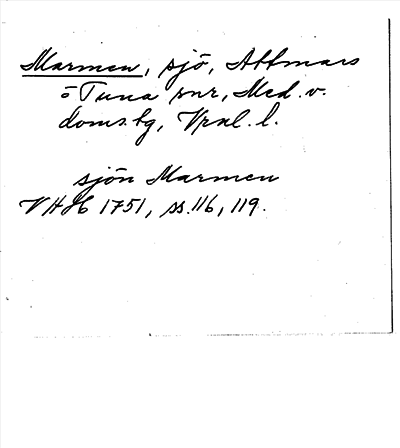 Marmen, sjö, Attmars
o Tuna snr, Med. v.
doms.hg, Vrnl. l.
sjön Marmen
VHH 1751, ss. 116, 119.